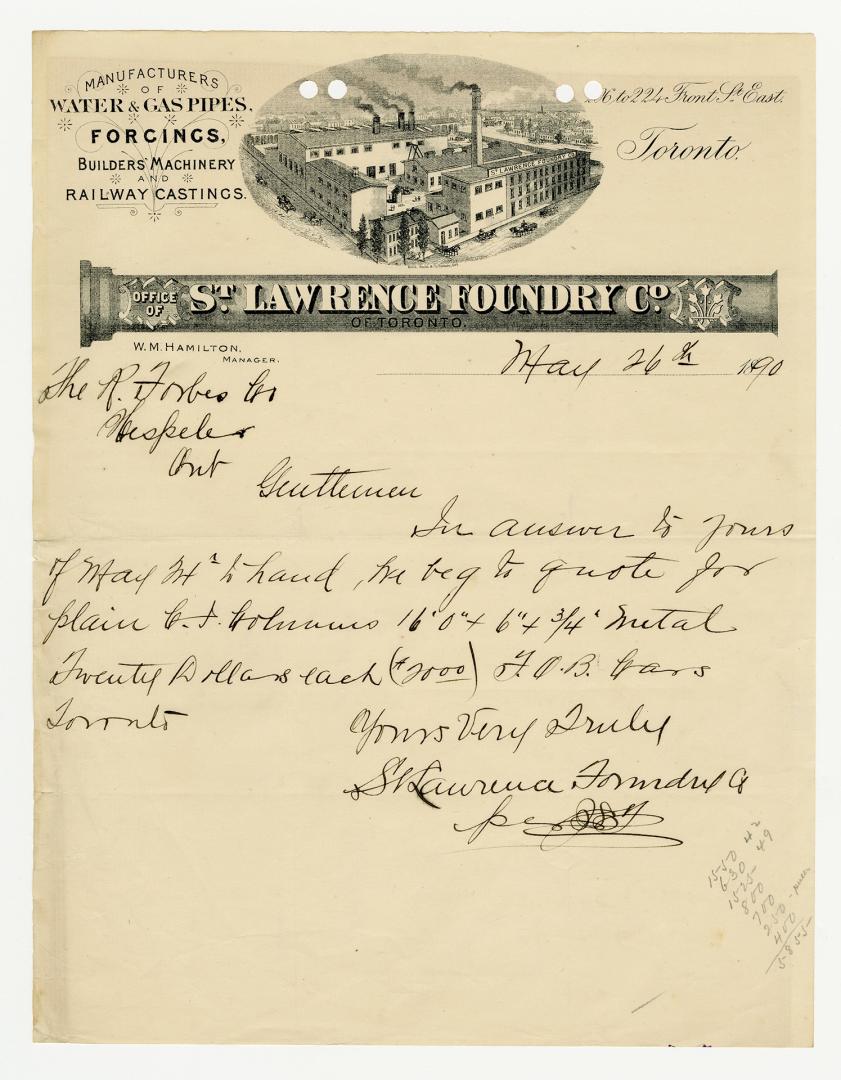 MANUFACTURERS
OF
WATER & GAS PIPES.
FORGINGS,
BUILDERS' MACHINERY
AND
RAILWAY CASTINGS.
ST LAWRENCE FOUNDRY CO
to 224 Front St East.
Toronto.
OFFICE OF ST LAWRENCE FOUNDRY CO
OF TORONTO.
W. M. HAMILTON,
MANAGER.
May 26th 1890
The R. Forbes Co
Hespeler
Ont
Gentlemen
In answer to yours
of May 24th to hand, We beg to quote for
plain C. I. Columns 16' 0" x 6" x 3/4" Metal
Twenty Dollars each ($2000) F. O. B. Cars
Toronto
Yours Very Truly
St Lawrence Foundry Co
per
42
1550 49
630
1525
800
700
250
400
5855